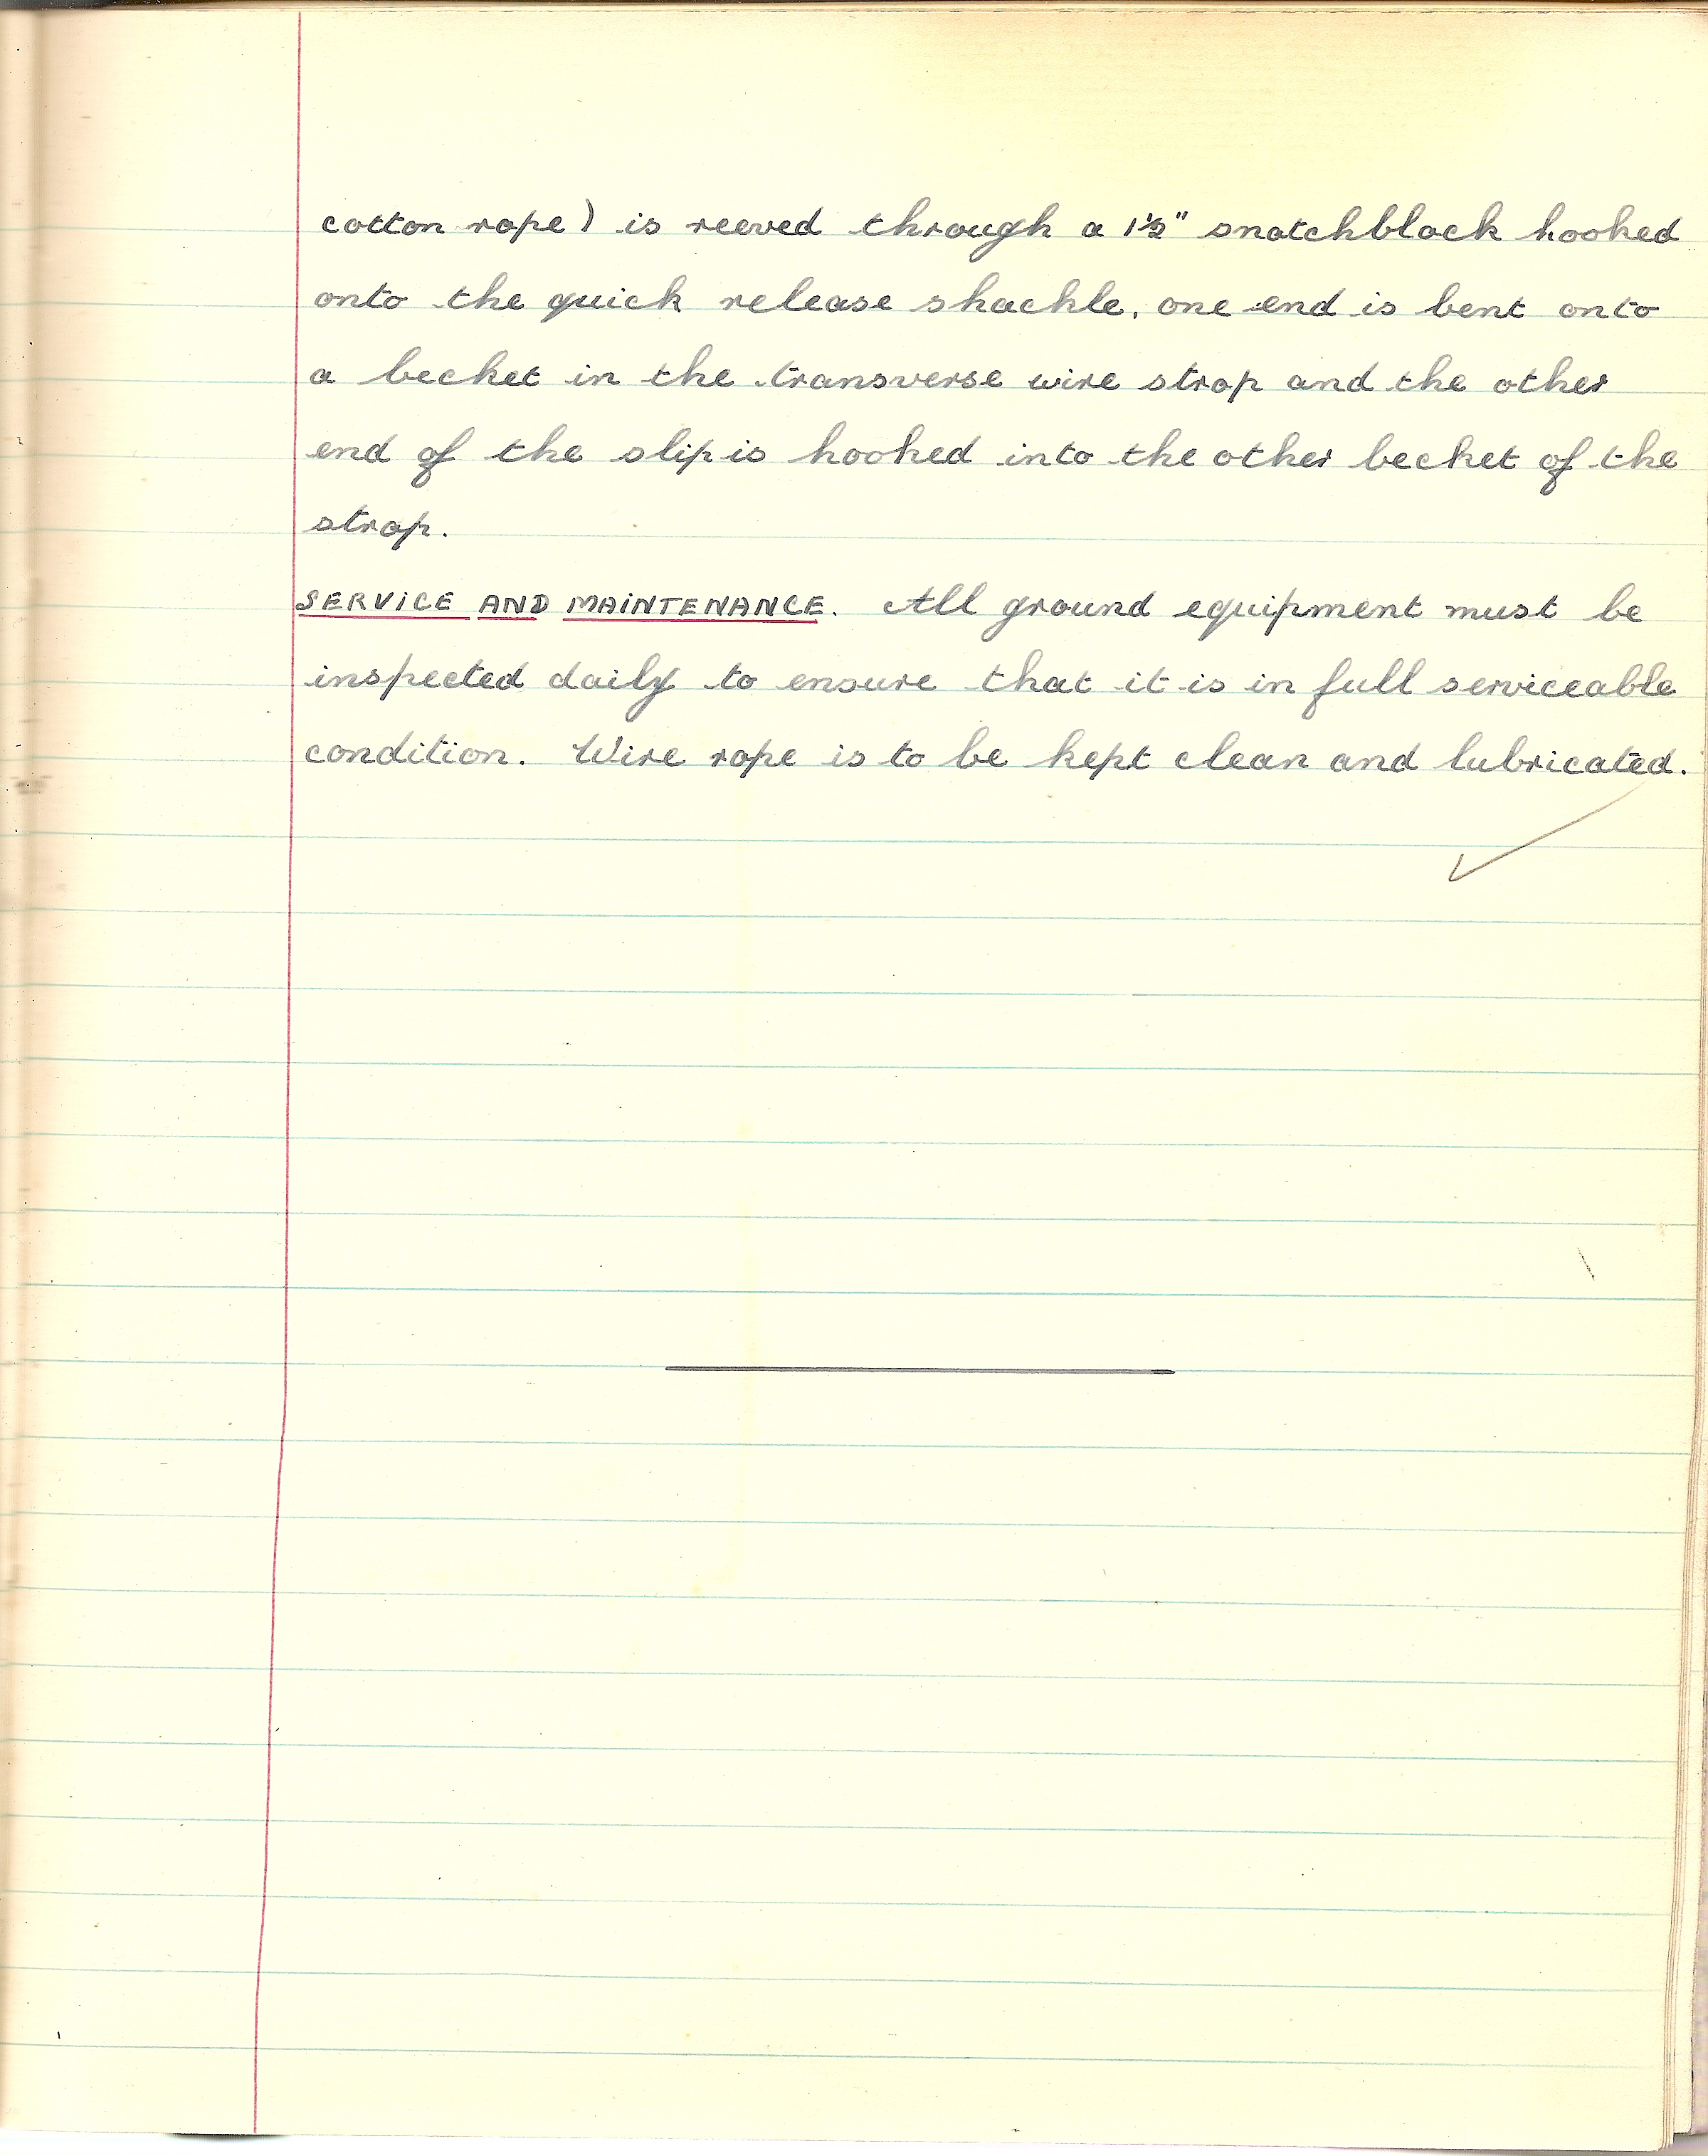 cotton rope) is reeved through a 1½" snatchblock hooked
onto the quick release shackle, one end is bent onto
a becket in the transverse wire strop and the other
end of the slip is hooked into the other becket of the
strop.
SERVICE AND MAINTENANCE. All ground equipment must be
inspected daily to ensure that it is in full serviceable
condition. Wire rope is to be kept clean and lubricated.